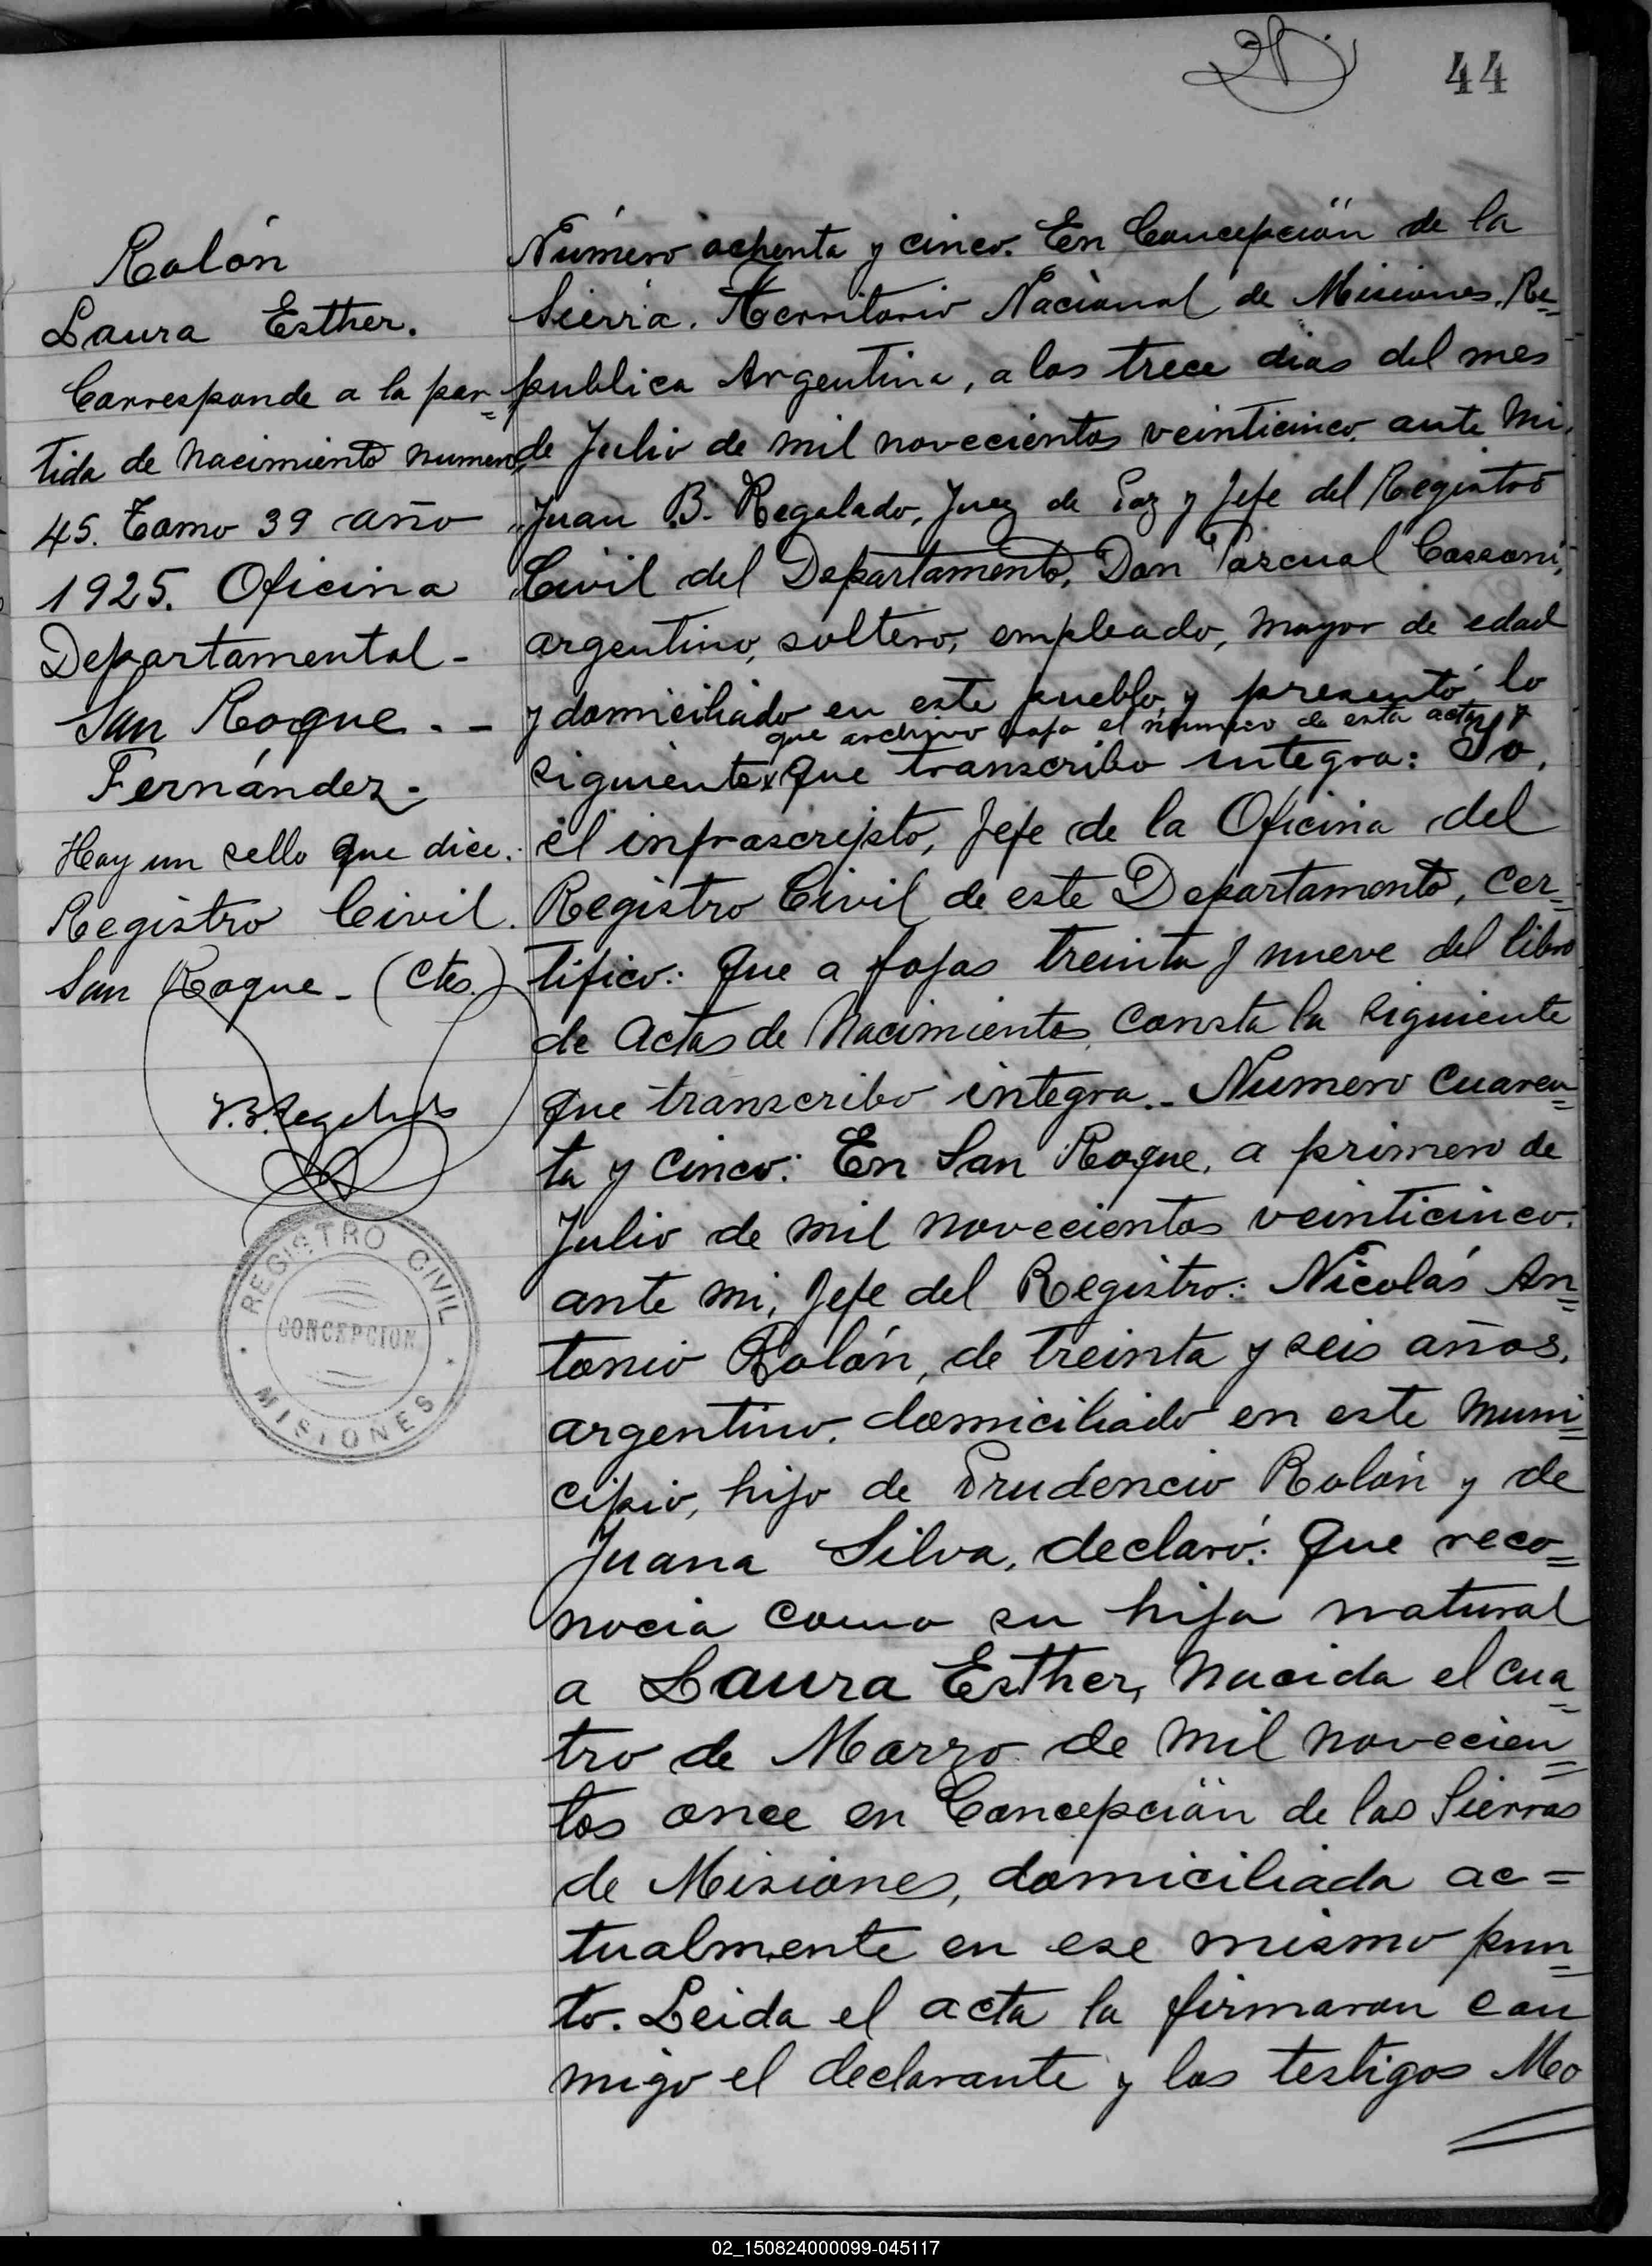 44
Rolón
Laura Esther.
Corresponde a la par=
tida de nacimiento numero
45. Tomo 39 año
1925. Oficina
Departamental -
San Roque. -
Fernández.
Hay un sello que dice:
Registro Civil.
San Roque - (Ctes.)
J.B. Regalado
REGISTRO CIVIL
CONCEPCION
MISIONES
Número ochenta y cinco. En Concepción de la
Sierra. Territorio Nacional de Misiones, Re=
publica Argentina, a los trece dias del mes
de Julio de mil novecientos veinticinco, ante mi,
Juan B. Regalado, Juez de Paz y Jefe del Registro
Civil del Departamento, Don Pascual
argentino, soltero, empleado, mayor de edad
y domiciliado en este pueblo, y presentó lo
que archivo bajo el número de esta acta y
siguiente que transcribo integra: Yo,
el infrascripto, Jefe de la Oficina del
Registro Civil de este Departamento, Cer=
tifico: Que a fojas treinta y nueve del libro
de Actas de Nacimientos, consta la siguiente
que transcribo integra.- Numero cuaren=
ta y cinco: En San Roque, a primero de
Julio de mil novecientos veinticinco.
ante mi, Jefe del Registro: Nicolás An=
tonio Rolón, de treinta y seis años,
argentino, domiciliado en este muni=
cipio, hijo de Prudencio Rolón y de
Juana Silva, declaró: Que reco=
nocia como su hija natural
a Laura Esther, nacida el cua=
tro de Marzo de mil novecien=
tos once en Concepción de las Sierras
de Misiones, domiciliada ac=
tualmente en ese mismo pun=
to. Leida el acta la firmaron con
migo el declarante y los testigos Mo
02_150824000099-045117